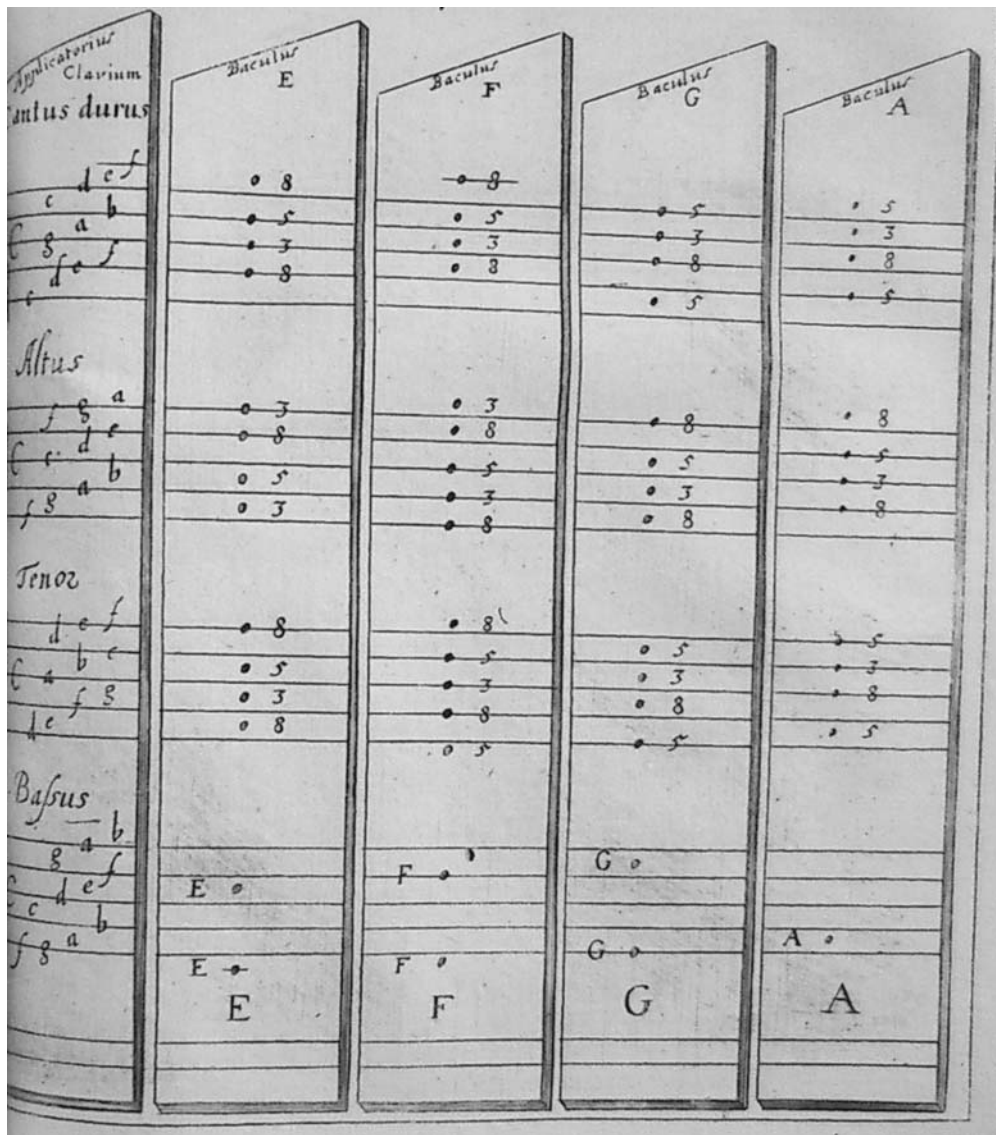 Applicatorius
Clavium
Cantus durus
d e f
c b
C g a
d e f
c
Altus
f g a
d e
C c
a b
f g
Tenor
d e f
b c
C a
f g
d e
Bassus
a b
g f
d e
c b
f g a
Baculus
E
8
5
3
8
3
8
5
3
8
5
3
8
E
E
E
Baculus
F
8
5
3
8
3
8
5
3
8
8
5
3
8
5
F
F
F
Baculus
G
5
3
8
5
8
5
3
8
5
3
8
5
G
G
G
Baculus
A
5
3
8
5
8
5
3
8
5
3
8
5
A
A